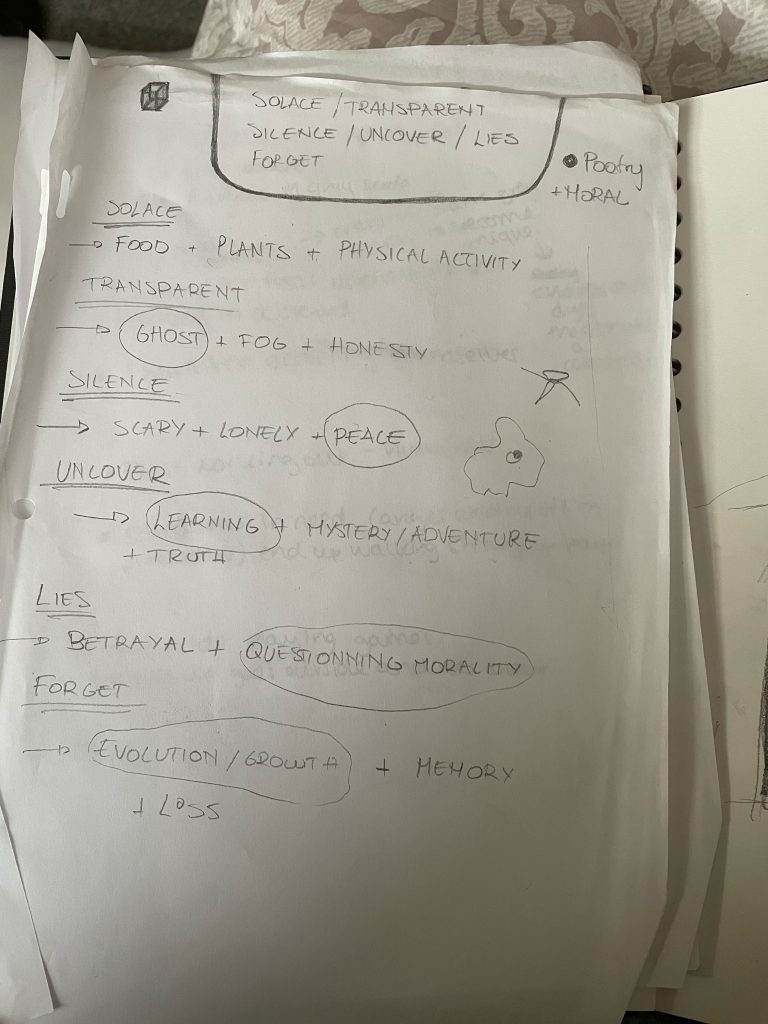 SOLACE / TRANSPARENT
SILENCE / UNCOVER / LIES
FORGET
Pootry
+ MORAL
SOLACE
→ FOOD + PLANTS + PHYSICAL ACTIVITY
TRANSPARENT
→ GHOST + FOG + HONESTY
SILENCE
→ SCARY + LONELY + PEACE
UNCOVER
→ LEARNING + MYSTERY / ADVENTURE
+ TRUTH
LIES
→ BETRAYAL + QUESTIONNING MORALITY
FORGET
→ EVOLUTION / GROWTH + MEMORY
+ LOSS